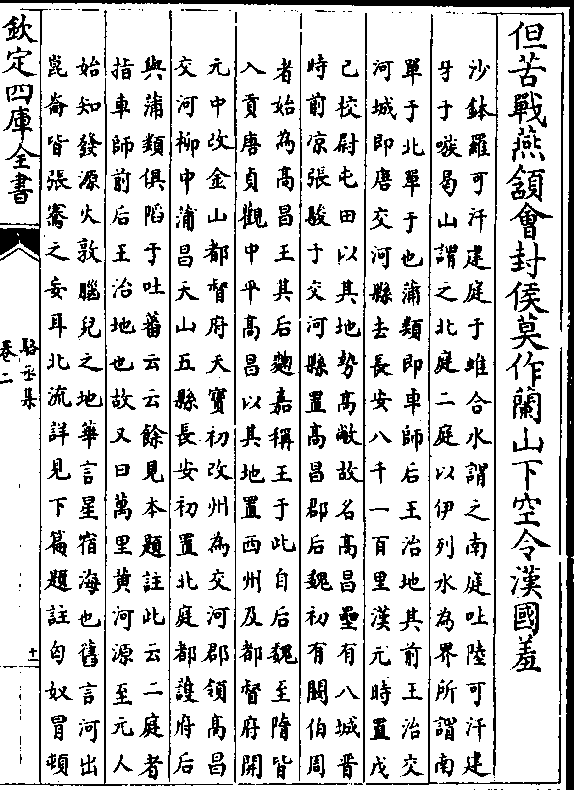 但苦戰燕頷會封侯莫作蘭山下空令漢國羞
沙鉢羅可汗建庭于雖合水謂之南庭吐陸可汗建
牙于嗾曷山謂之北庭二庭以伊列水為界所謂南
單于北單于也蒲類即車師后王治地其前王治交
河城即唐交河縣去長安八千一百里漢元時置戊
己校尉屯田以其地勢高敞故名高昌壘有八城晋
時前凉張駿于交河縣置高昌郡后魏初有闞伯周
者始為高昌王其后麴嘉稱王于此自后魏至隋皆
入貢唐貞觀中平高昌以其地置西州及都督府開
元中改金山都督府天寳初改州為交河郡領高昌
交河柳中蒲昌天山五縣長安初置北庭都護府后
與蒲類俱䧟于吐蕃云云餘見本題註此云二庭者
指車師前后王治地也故又曰萬里黄河源至元人
始知發源火敦腦兒之地華言星宿海也舊言河出
崑崙皆張騫之妄耳北流詳見下篇題註匈奴冒頓
欽定四庫全書
駱丞集
卷二
十二